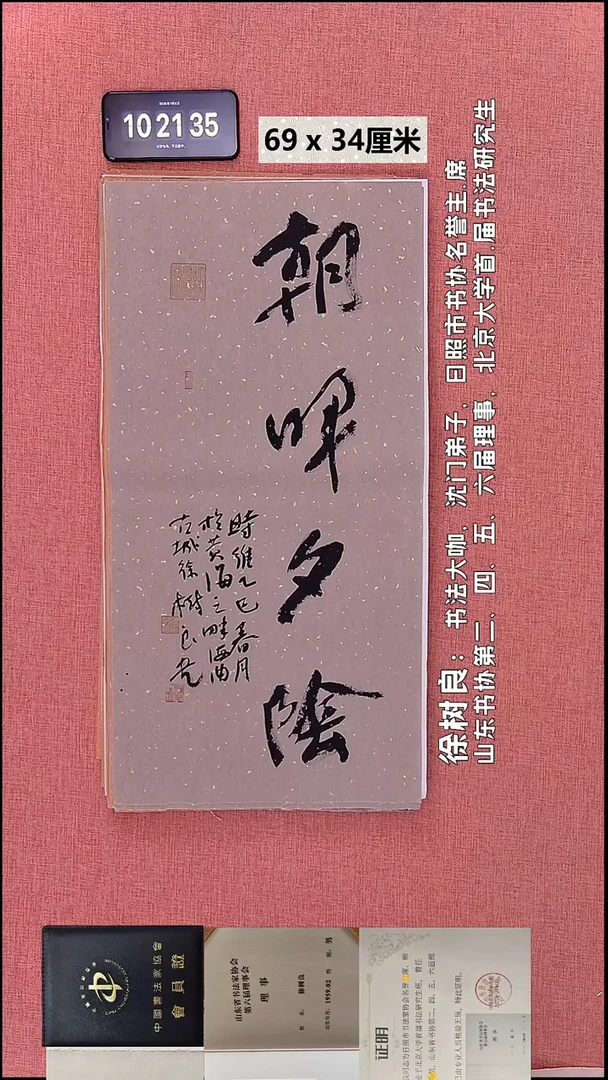 10 21 35
69 x 34厘米
朝暉夕陰
時維乙巳春月
於黄海之畔海曲
古城徐樹良書
徐树良：书法大咖，沈门弟子，日照市书协名誉主.席
山东书协第二、四、五、六届理事，北京大学首.届书法研究生
中國書法家協會
會員證
山东省书法家协会
第六届理事会
理 事
姓 名：徐树良
性 别：男
出生年月：1959.02
证明